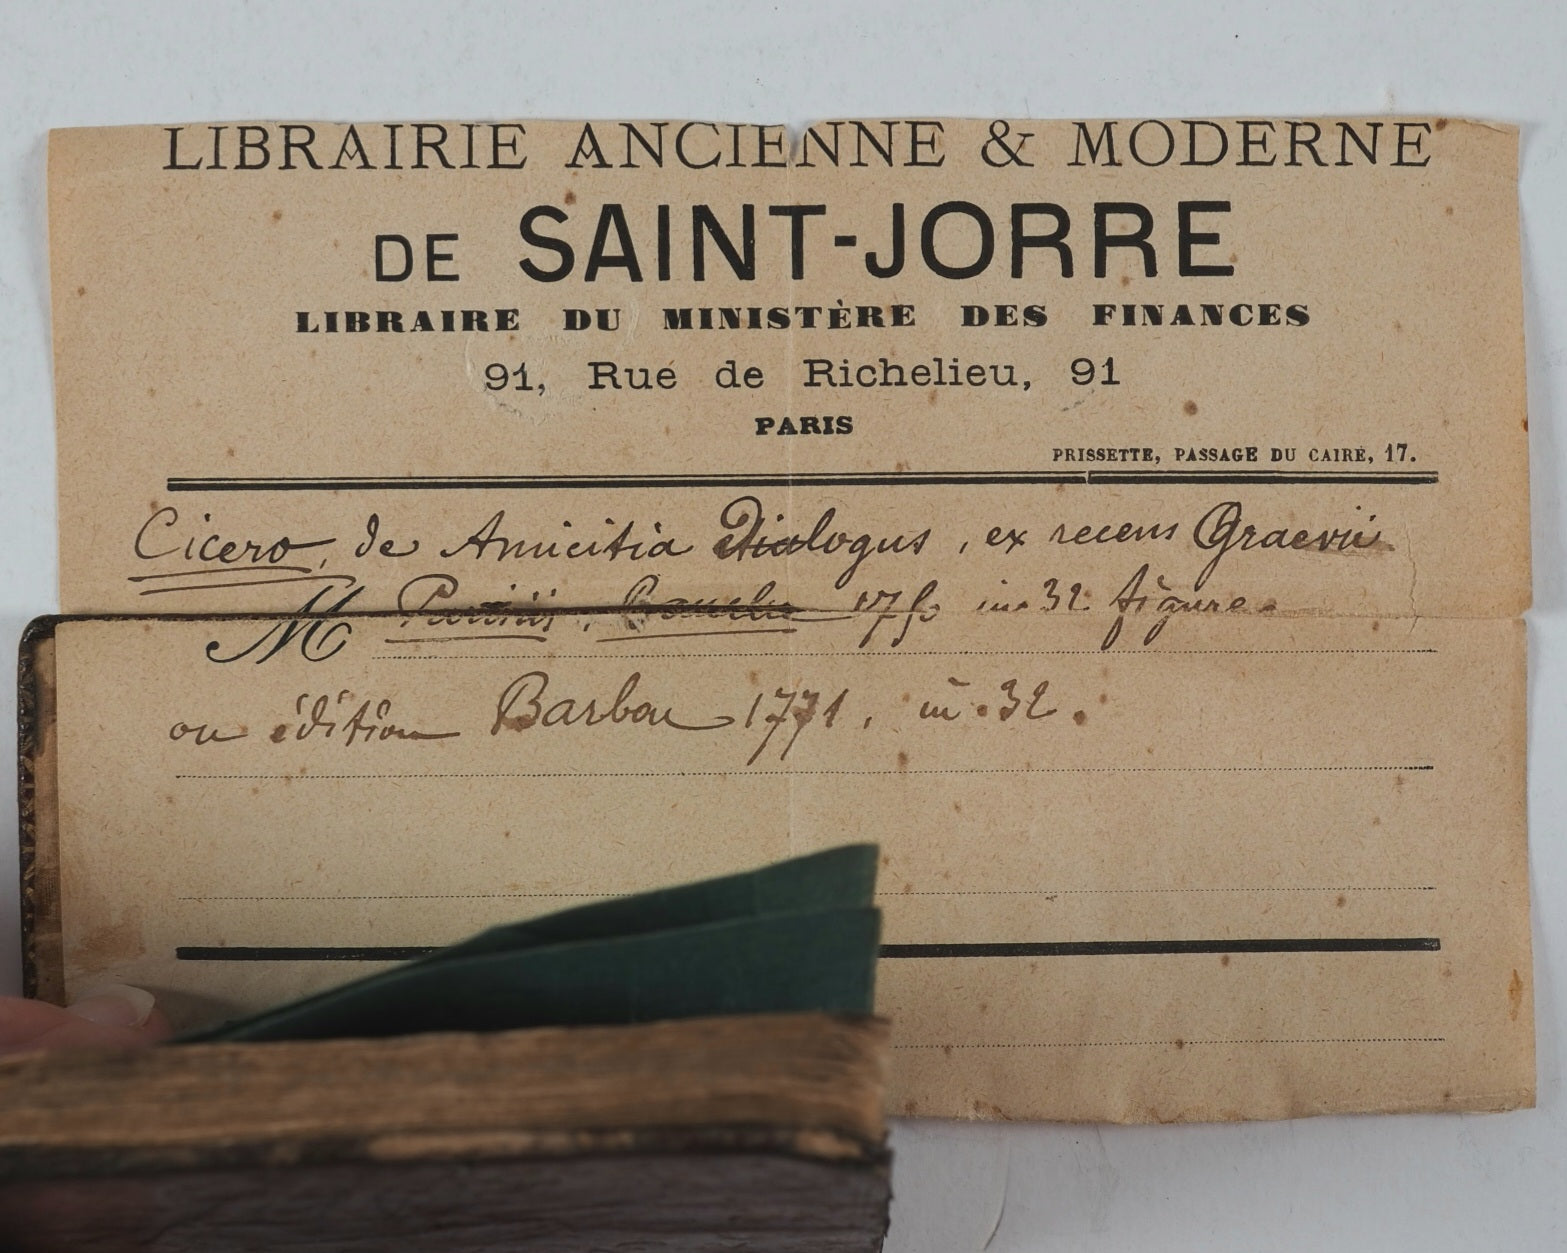 LIBRAIRIE ANCIENNE & MODERNE
DE SAINT-JORRE
LIBRAIRE DU MINISTÈRE DES FINANCES
91, Rue de Richelieu, 91
PARIS
PRISSETTE, PASSAGE DU CAIRE, 17.
Cicero, de Amicitia Dialogus, ex recens Graevii
M Parisiis, in-32 figure
ou édition Barbou 1771, in-32.